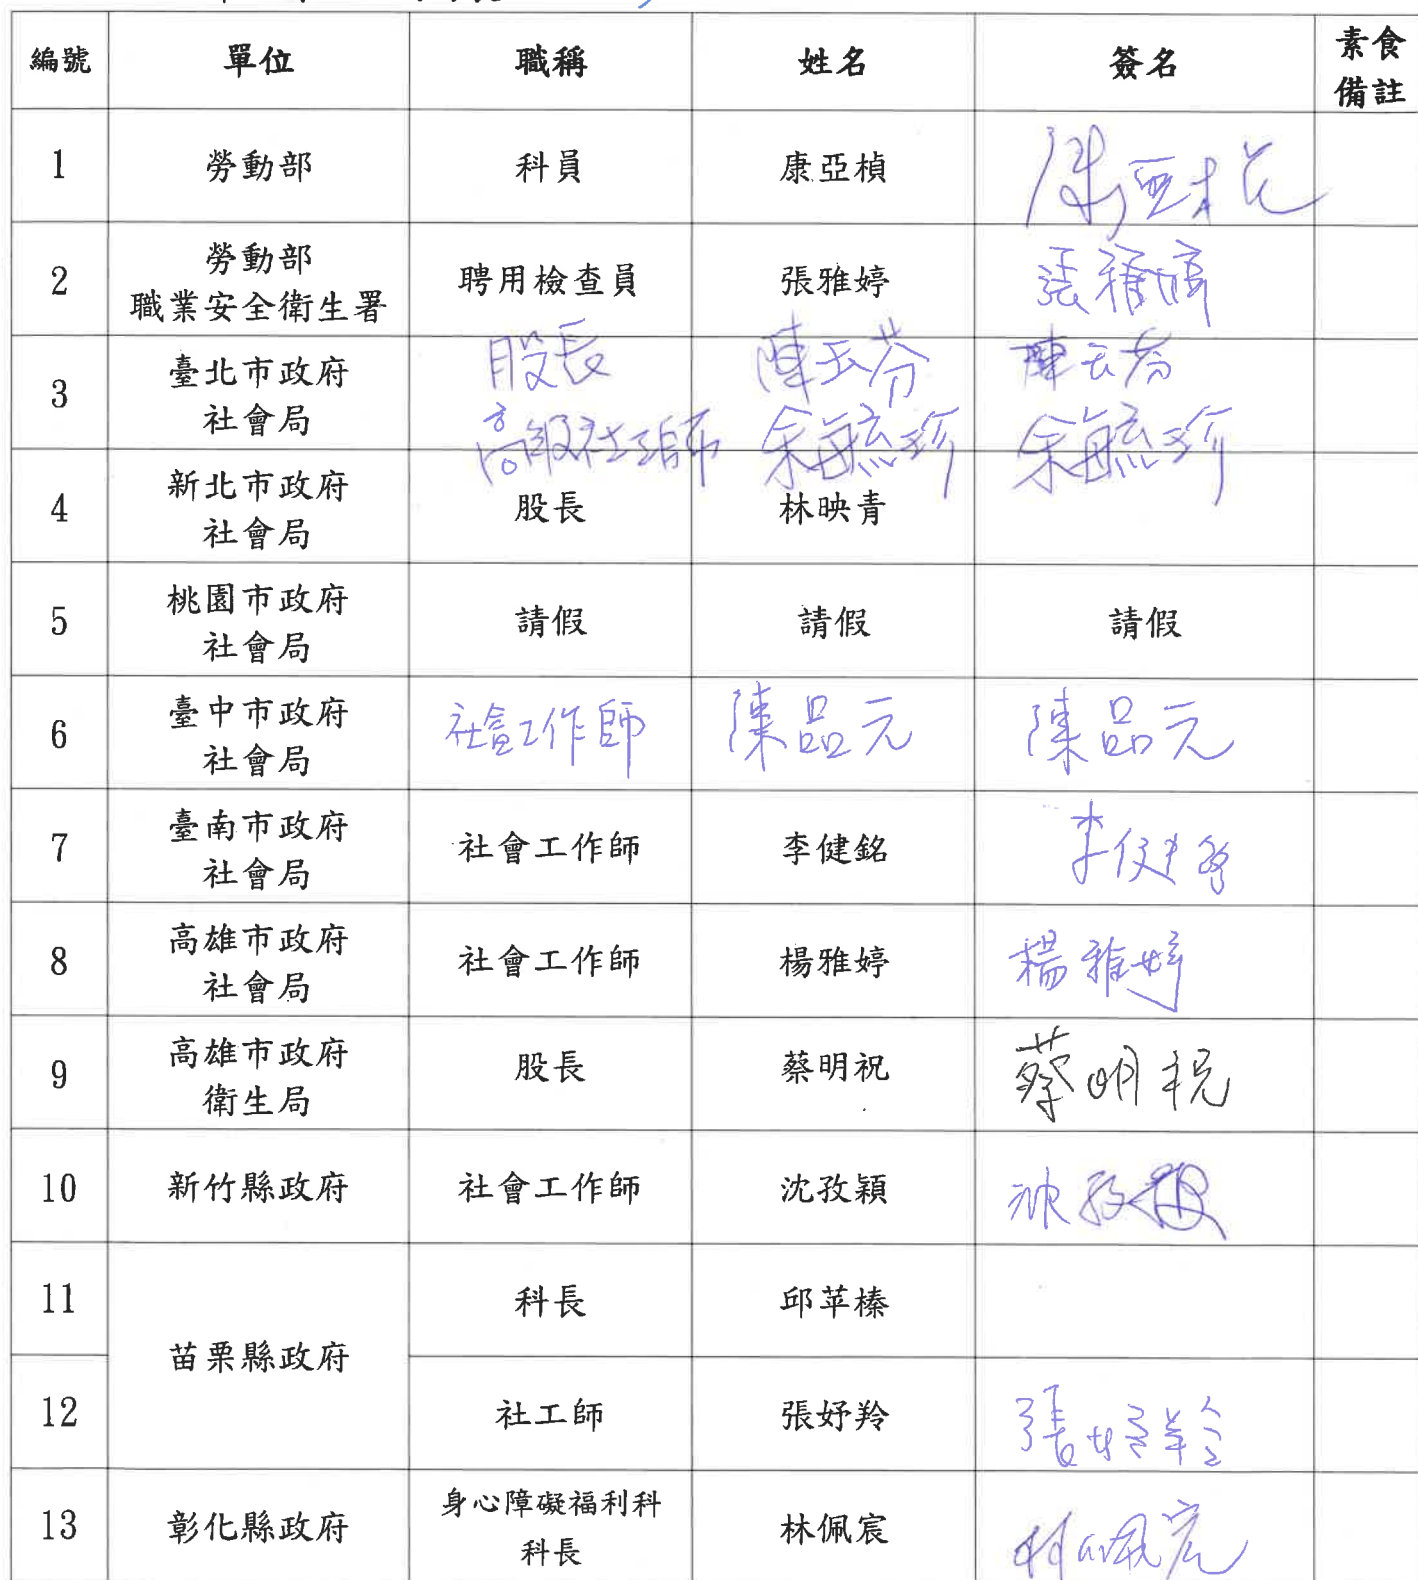 編號 單位 職稱 姓名 簽名 素食備註
1 勞動部 科員 康亞楨 康亞楨
2 勞動部 職業安全衛生署 聘用檢查員 張雅婷 張雅婷
3 臺北市政府 社會局 股長 陳玉芬 陳玉芬
高級社工師 余毓珍 余毓珍
4 新北市政府 社會局 股長 林映青
5 桃園市政府 社會局 請假 請假 請假
6 臺中市政府 社會局 社會工作師 陳品元 陳品元
7 臺南市政府 社會局 社會工作師 李健銘 李健銘
8 高雄市政府 社會局 社會工作師 楊雅婷 楊雅婷
9 高雄市政府 衛生局 股長 蔡明祝 蔡明祝
10 新竹縣政府 社會工作師 沈孜穎 沈孜穎
11 苗栗縣政府 科長 邱苹榛
12 社工師 張妤羚 張妤羚
13 彰化縣政府 身心障礙福利科 科長 林佩宸 林佩宸